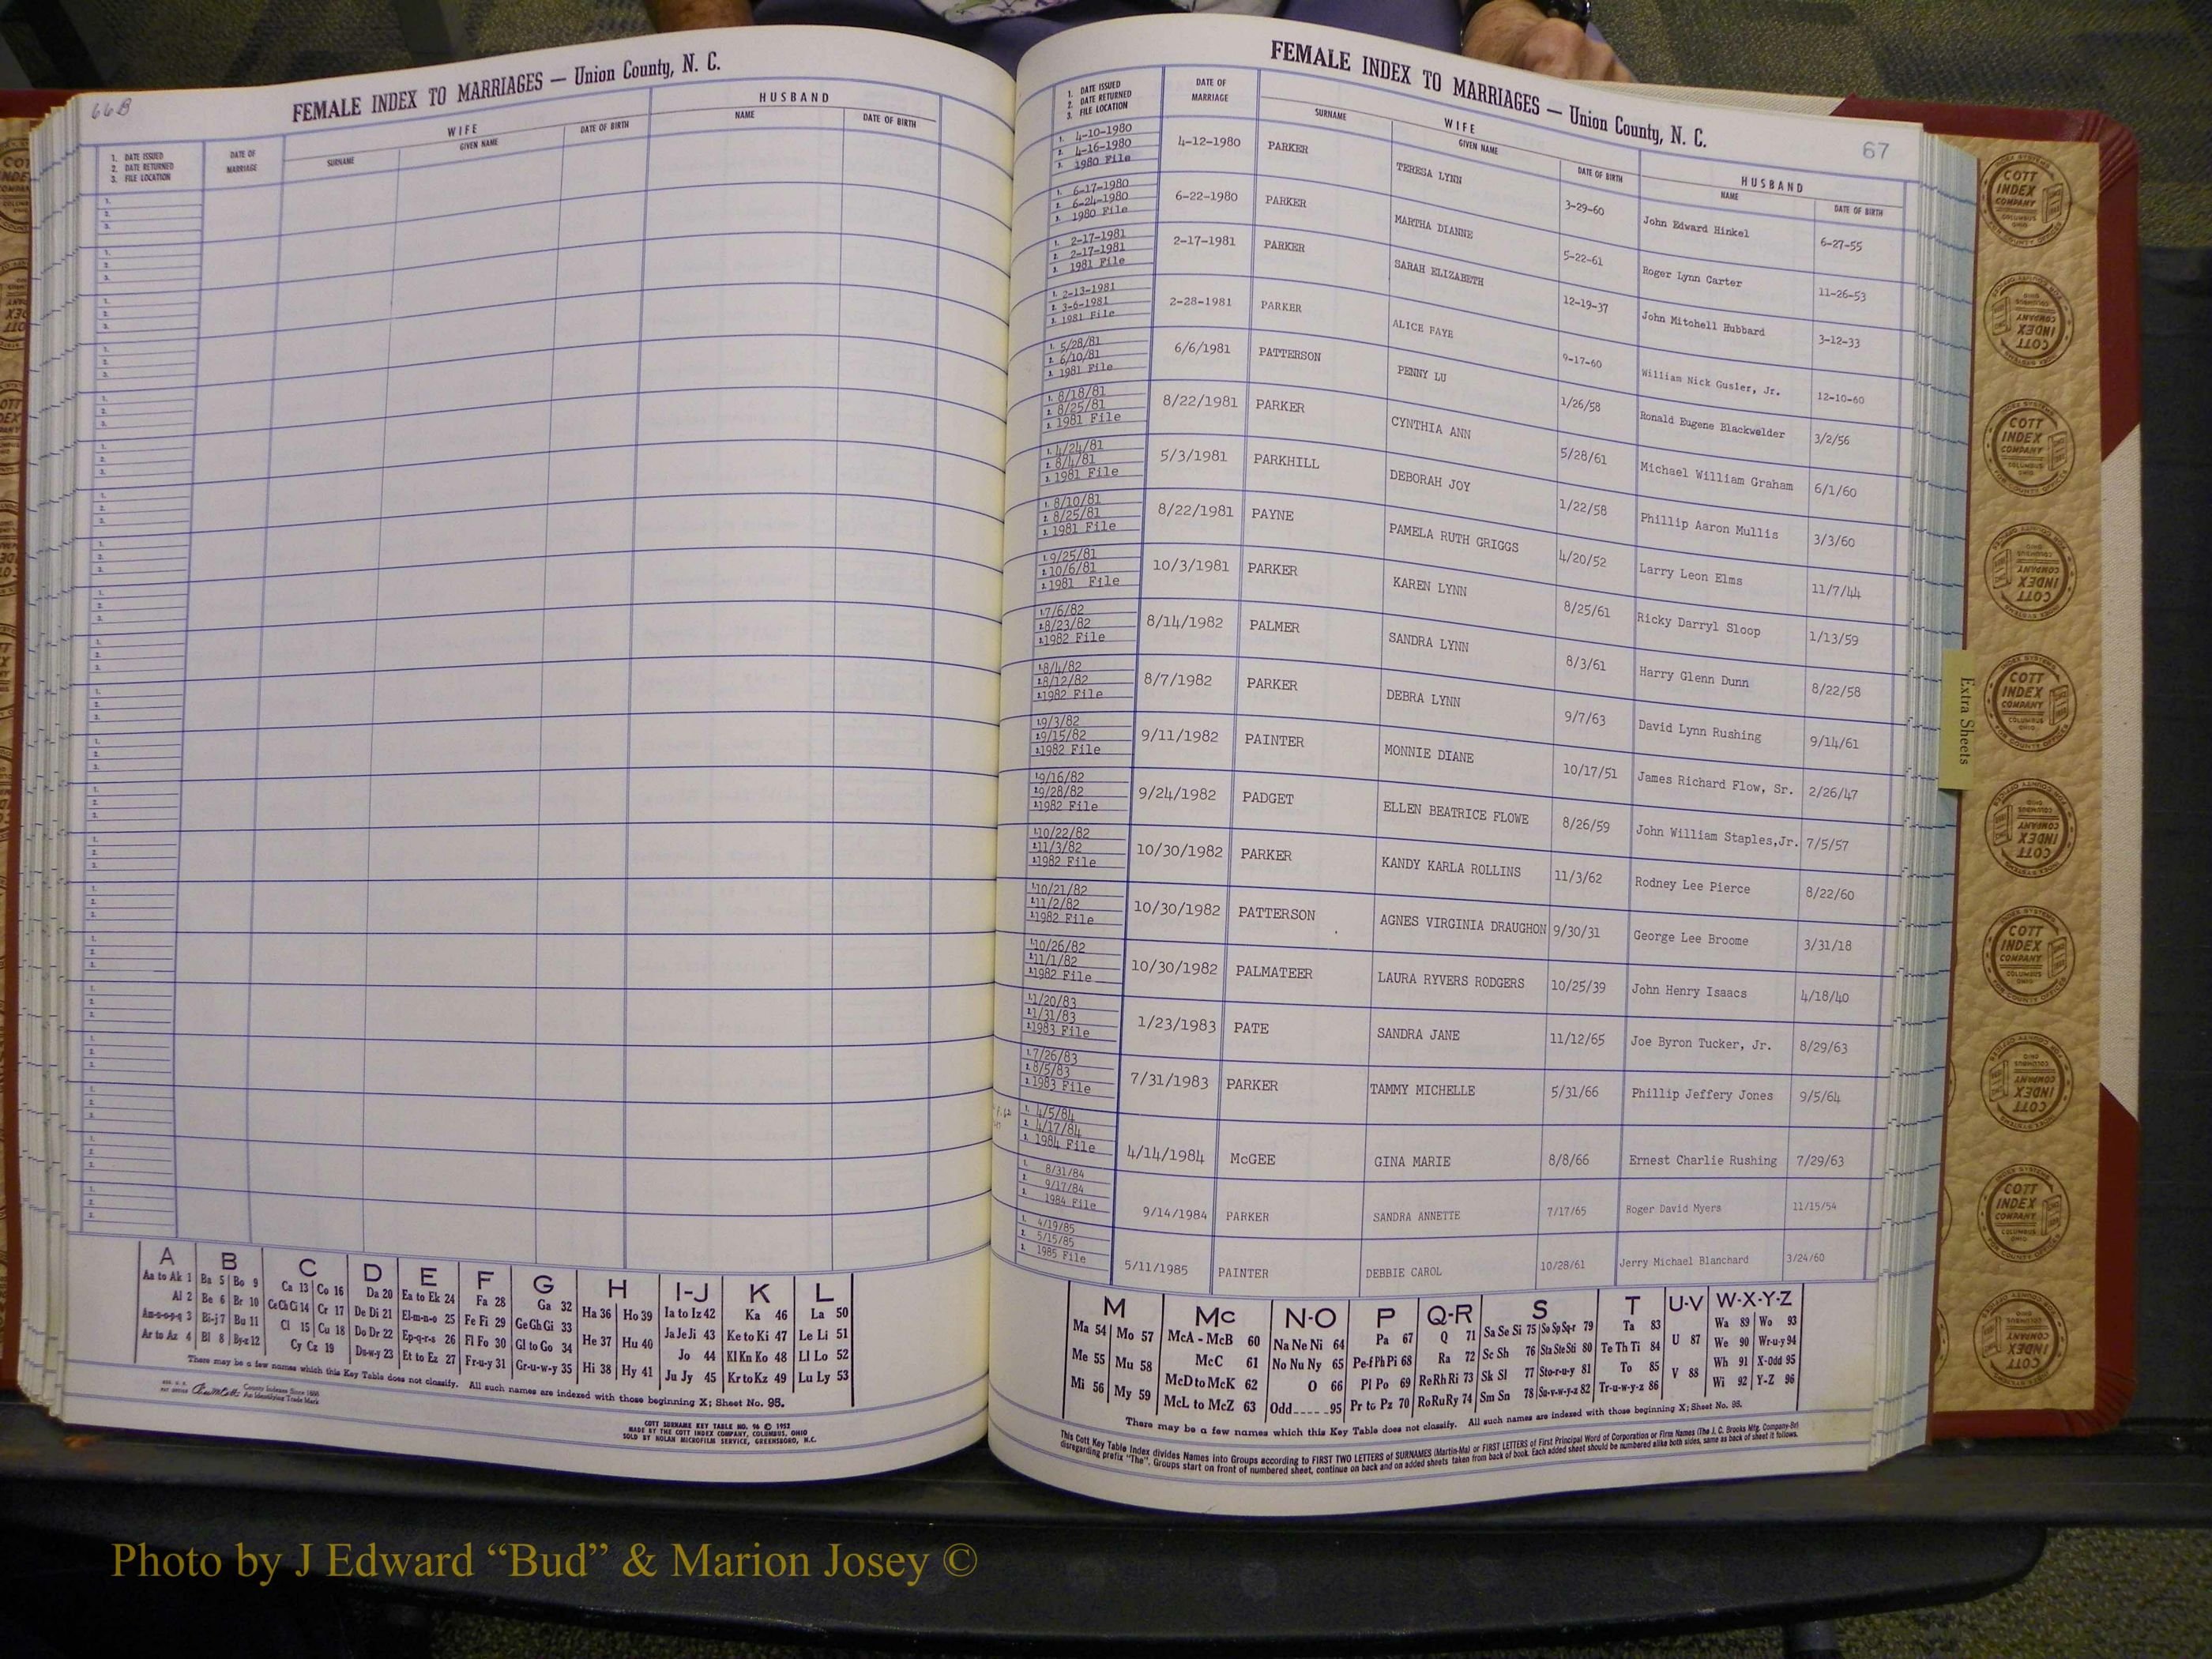 66B
FEMALE INDEX TO MARRIAGES — Union County, N. C.
1. DATE ISSUED
2. DATE RETURNED
3. FILE LOCATION
DATE OF MARRIAGE
WIFE
SURNAME
GIVEN NAME
DATE OF BIRTH
HUSBAND
NAME
DATE OF BIRTH
A B C D E F G H I-J K L
Aa to Ak 1 Ba 5 Bo 9 Ca 13 Co 16 Da 20 Ea to Ek 24 Fa 28 Ga 32 Ha 36 Ho 39 Ia to Iz 42 Ka 46 La 50
Al 2 Be 6 Br 10 Ce Ch Ci 14 Cr 17 De Di 21 El-m-n-o 25 Fe Fi 29 Ge Gh Gi 33 He 37 Hu 40 Ja Je Ji 43 Ke to Ki 47 Le Li 51
Am-n-o-p-q 3 Bi-j 7 Bu 11 Cl 15 Cu 18 Do Dr 22 Ep-q-r-s 26 Fl Fo 30 Gl to Go 34 Hi 38 Hy 41 Jo 44 Kl Kn Ko 48 Ll Lo 52
Ar to Az 4 Bl 8 By-z 12 Cy Cz 19 Du-w-y 23 Et to Ez 27 Fr-u-y 31 Gr-u-w-y 35 Ju Jy 45 Kr to Kz 49 Lu Ly 53
There may be a few names which this Key Table does not classify. All such names are indexed with those beginning X; Sheet No. 95.
County Indexes Since 1888
An Identifying Trade Mark
COTT SURNAME KEY TABLE NO. 96 © 1952
MADE BY THE COTT INDEX COMPANY, COLUMBUS, OHIO
SOLD BY NOLAN MICROFILM SERVICE, GREENSBORO, N.C.
FEMALE INDEX TO MARRIAGES — Union County, N. C.
67
1. DATE ISSUED
2. DATE RETURNED
3. FILE LOCATION
DATE OF MARRIAGE
WIFE
SURNAME
GIVEN NAME
DATE OF BIRTH
HUSBAND
NAME
DATE OF BIRTH
1. 4-10-1980
2. 4-16-1980
3. 1980 File
4-12-1980 PARKER TERESA LYNN 3-29-60 John Edward Hinkel 6-27-55
1. 6-17-1980
2. 6-24-1980
3. 1980 File
6-22-1980 PARKER MARTHA DIANNE 5-22-61 Roger Lynn Carter 11-26-53
1. 2-17-1981
2. 2-17-1981
3. 1981 File
2-17-1981 PARKER SARAH ELIZABETH 12-19-37 John Mitchell Hubbard 3-12-33
1. 2-13-1981
2. 3-6-1981
3. 1981 File
2-28-1981 PARKER ALICE FAYE 9-17-60 William Nick Gusler, Jr. 12-10-60
1. 5/28/81
2. 6/10/81
3. 1981 File
6/6/1981 PATTERSON PENNY LU 1/26/58 Ronald Eugene Blackwelder 3/2/56
1. 8/18/81
2. 8/25/81
3. 1981 File
8/22/1981 PARKER CYNTHIA ANN 5/28/61 Michael William Graham 6/1/60
1. 4/24/81
2. 8/4/81
3. 1981 File
5/3/1981 PARKHILL DEBORAH JOY 1/22/58 Phillip Aaron Mullis 3/3/60
1. 8/10/81
2. 8/25/81
3. 1981 File
8/22/1981 PAYNE PAMELA RUTH GRIGGS 4/20/52 Larry Leon Elms 11/7/44
1. 9/25/81
2. 10/6/81
3. 1981 File
10/3/1981 PARKER KAREN LYNN 8/25/61 Ricky Darryl Sloop 1/13/59
1. 7/6/82
2. 8/23/82
3. 1982 File
8/14/1982 PALMER SANDRA LYNN 8/3/61 Harry Glenn Dunn 8/22/58
1. 8/4/82
2. 8/12/82
3. 1982 File
8/7/1982 PARKER DEBRA LYNN 9/7/63 David Lynn Rushing 9/14/61
1. 9/3/82
2. 9/15/82
3. 1982 File
9/11/1982 PAINTER MONNIE DIANE 10/17/51 James Richard Flow, Sr. 2/26/47
1. 9/16/82
2. 9/28/82
3. 1982 File
9/24/1982 PADGET ELLEN BEATRICE FLOWE 8/26/59 John William Staples,Jr. 7/5/57
1. 10/22/82
2. 11/3/82
3. 1982 File
10/30/1982 PARKER KANDY KARLA ROLLINS 11/3/62 Rodney Lee Pierce 8/22/60
1. 10/21/82
2. 11/2/82
3. 1982 File
10/30/1982 PATTERSON AGNES VIRGINIA DRAUGHON 9/30/31 George Lee Broome 3/31/18
1. 10/26/82
2. 11/1/82
3. 1982 File
10/30/1982 PALMATEER LAURA RYVERS RODGERS 10/25/39 John Henry Isaacs 4/18/40
1. 1/20/83
2. 1/31/83
3. 1983 File
1/23/1983 PATE SANDRA JANE 11/12/65 Joe Byron Tucker, Jr. 8/29/63
1. 7/26/83
2. 8/5/83
3. 1983 File
7/31/1983 PARKER TAMMY MICHELLE 5/31/66 Phillip Jeffery Jones 9/5/64
1. 4/5/84
2. 4/17/84
3. 1984 File
4/14/1984 McGEE GINA MARIE 8/8/66 Ernest Charlie Rushing 7/29/63
1. 8/31/84
2. 9/17/84
3. 1984 File
9/14/1984 PARKER SANDRA ANNETTE 7/17/65 Roger David Myers 11/15/54
1. 4/19/85
2. 5/15/85
3. 1985 File
5/11/1985 PAINTER DEBBIE CAROL 10/28/61 Jerry Michael Blanchard 3/24/60
M Mc N-O P Q-R S T U-V W-X-Y-Z
Ma 54 Mo 57 McA - McB 60 Na Ne Ni 64 Pa 67 Q 71 Sa Se Si 75 So Sp Sq-r 79 Ta 83 U 87 Wa 89 Wo 93
Me 55 Mu 58 McC 61 No Nu Ny 65 Pe-f Ph Pi 68 Ra 72 Sc Sh 76 Sta Ste Sti 80 Te Th Ti 84 V 88 We 90 Wr-u-y 94
Mi 56 My 59 McD to McK 62 O 66 Pl Po 69 Re Rh Ri 73 Sk Sl 77 Sto-r-u-y 81 To 85 Wh 91 X-Odd 95
McL to McZ 63 Odd 95 Pr to Pz 70 Ro Ru Ry 74 Sm Sn 78 Su-v-w-y-z 82 Tr-u-w-y-z 86 Wi 92 Y-Z 96
There may be a few names which this Key Table does not classify. All such names are indexed with those beginning X; Sheet No. 95.
This Cott Key Table Index divides Names into Groups according to FIRST TWO LETTERS of SURNAMES (Martin-Ma) or FIRST LETTERS of First Principal Word of Corporation or Firm Names (The J. C. Brooks Mfg. Company-Br)
disregarding prefix "The". Groups start on front of numbered sheet, continue on back and on added sheets taken from back of book. Each added sheet should be numbered alike both sides, same as back of sheet it follows.
Extra Sheets
COTT INDEX COMPANY
COLUMBUS OHIO
INDEX SYSTEMS
FOR COUNTY OFFICES
Photo by J Edward “Bud” & Marion Josey ©